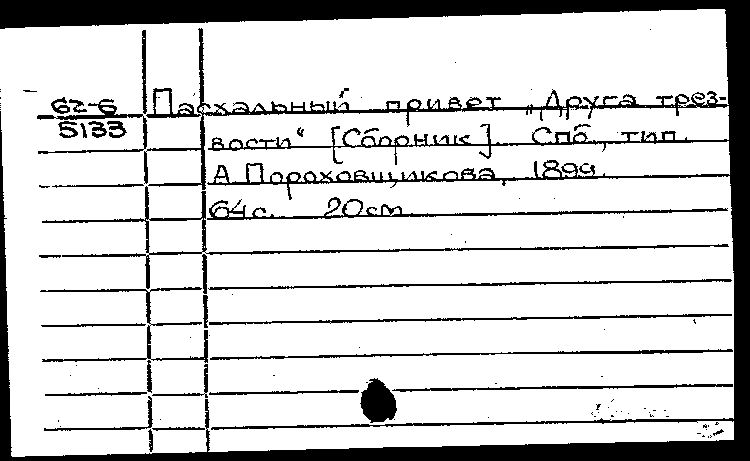 62-6 Пасхальный привет „Друга трез-
5133 вости“ [Сборник]. Спб., тип.
А. Пороховщикова, 1899.
64 с. 20 см.